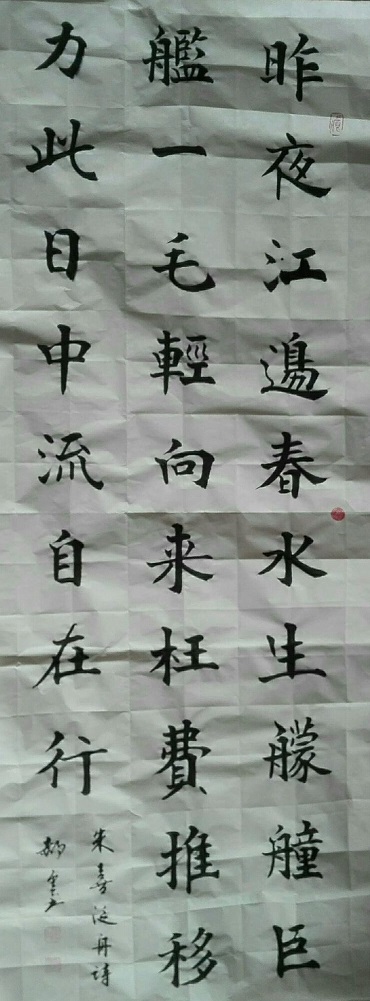 昨夜江邊春水生艨艟巨
艦一毛輕向来枉費推移
力此日中流自在行
朱熹泛舟詩